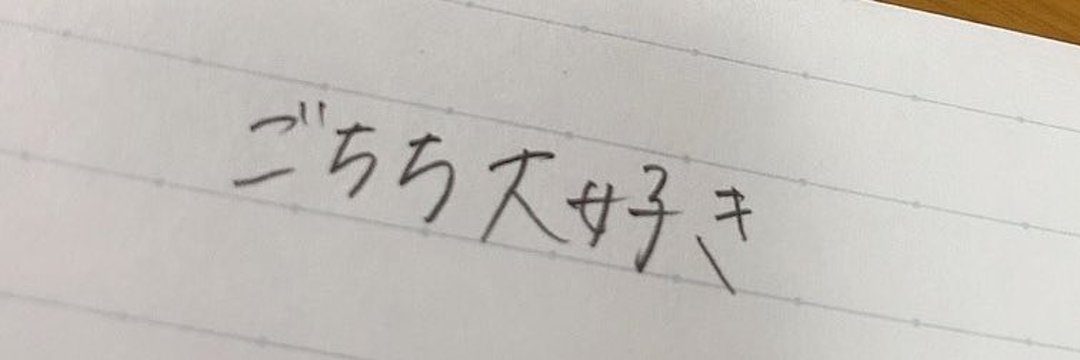 ごちち大好き